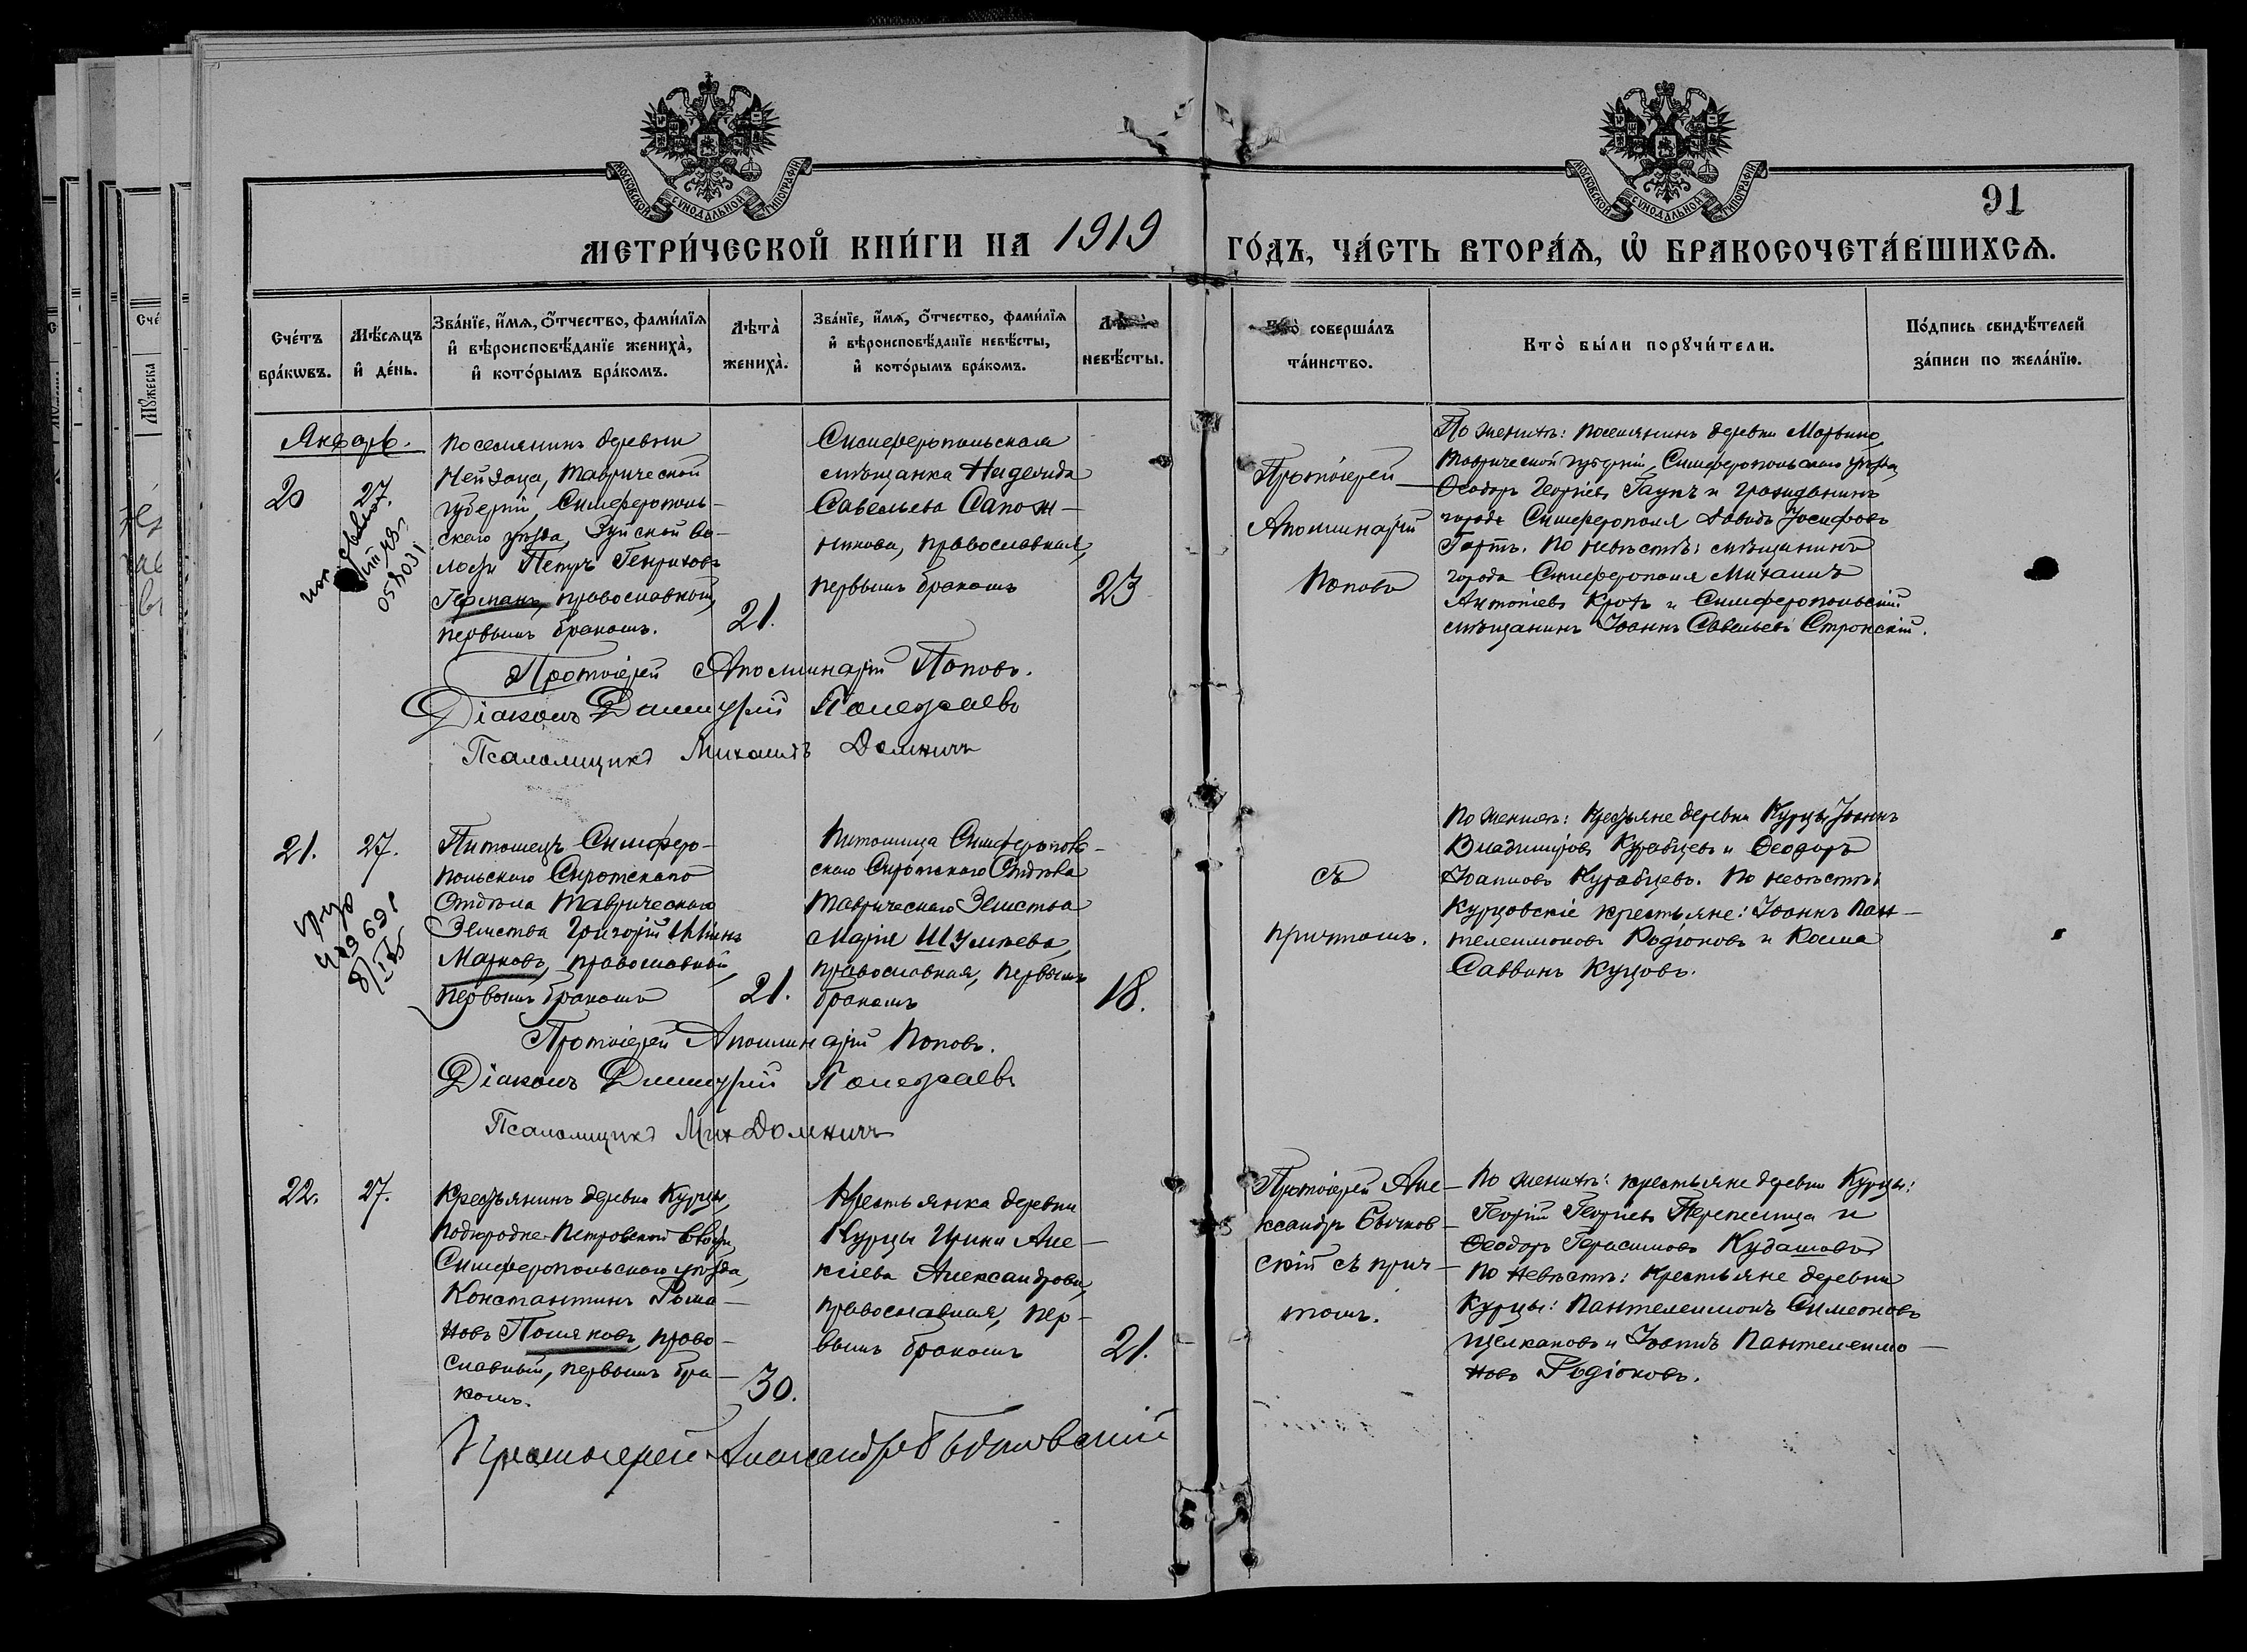 МОСКОВСКОЙ СѴНОДАЛЬНОЙ ТИПОГРАФІИ
МОСКОВСКОЙ СѴНОДАЛЬНОЙ ТИПОГРАФІИ
91
МЕТРИ́ЧЕСКОЙ КНИ́ГИ НА 1919 ГО́ДЪ, ЧА́СТЬ ВТОРА́Я, Ѡ҆ БРАКОСОЧЕТА́ВШИХСЯ.
Сче́тъ бра́кѡвъ.
Мѣ́сяцъ и҆ де́нь.
Зва́нїе, и҆́мѧ, ѻ҆́тчество, фами́лїѧ и҆ вѣроисповѣ́данїе жениха̀, и҆ кото́рымъ бра́комъ.
Лѣта̀ жениха̀.
Зва́нїе, и҆́мѧ, ѻ҆́тчество, фами́лїѧ и҆ вѣроисповѣ́данїе невѣ́сты, и҆ кото́рымъ бра́комъ.
невѣ́сты.
Кто̀ соверша́лъ та́инство.
Кто̀ бы́ли порꙋчи́тели.
По́дпись свидѣ́телей за́писи по жела́нїю.
Январь.
20
27.
Поселянинъ деревни
Нейзаца, Таврической
губерніи, Симферополь-
скаго уѣзда, Зуйской во-
лости Петръ Генриховъ
Германъ, православный,
первымъ бракомъ.
21.
Симферопольская
мѣщанка Надежда
Савельева Сапож-
никова, православная,
первымъ бракомъ
23
Протоіерей
Аполлинарій
Поповъ
По женихѣ: поселянинъ деревни Марьино,
Таврической губерніи, Симферопольскаго уѣзда,
Ѳеодоръ Георгіевъ Гаукъ и гражданинъ
города Симферополя Давидъ Іосифовъ
Гартъ. По невѣстѣ: мѣщанинъ
города Симферополя Михаилъ
Антоніевъ Кротъ и Симферопольскій
мѣщанинъ Іоаннъ Савельевъ Стронскій.
Протоіерей Аполлинарій Поповъ.
Діаконъ Димитрій Полежаевъ
Псаломщикъ Михаилъ Домничъ
21.
27.
Питомецъ Симферо-
польскаго Сиротскаго
Отдѣла Таврическаго
Земства Григорій
Марковъ, православный,
первымъ бракомъ
21.
Питомица Симферополь-
скаго Сиротскаго Отдѣла
Таврическаго Земства
Марія Шультева,
православная, первымъ
бракомъ
18.
съ
причтомъ.
По женихѣ: крестьяне деревни Курцы Іоаннъ
Владиміровъ Курабцевъ и Ѳеодоръ
Іоанновъ Курабцевъ. По невѣстѣ:
Курцовскіе крестьяне: Іоаннъ Пан-
телеимоновъ Родіоновъ и Косма
Саввинъ Куцовъ.
Протоіерей Аполлинарій Поповъ.
Діаконъ Димитрій Полежаевъ
Псаломщикъ Мих Домничъ
22.
27.
Крестьянинъ деревни Курцы,
Подгородне-Петровской волости,
Симферопольскаго уѣзда,
Константинъ Рома-
новъ Поляковъ, право-
славный, первымъ бра-
комъ.
30.
Крестьянка деревни
Курцы Ирина Але-
ксіева Александрова,
православная, пер-
вымъ бракомъ
21.
Протоіерей Але-
ксандръ Бычков-
скій съ прич-
томъ.
По женихѣ: крестьяне деревни Курцы:
Георгій Георгіевъ Перепелица и
Ѳеодоръ Герасимовъ Кудашовъ
По невѣстѣ: крестьяне деревни
Курцы: Пантелеимонъ Симеоновъ
Щелкановъ и Іоаннъ Пантелеимо-
новъ Родіоновъ.
Протоіерей Александръ Бычковскій